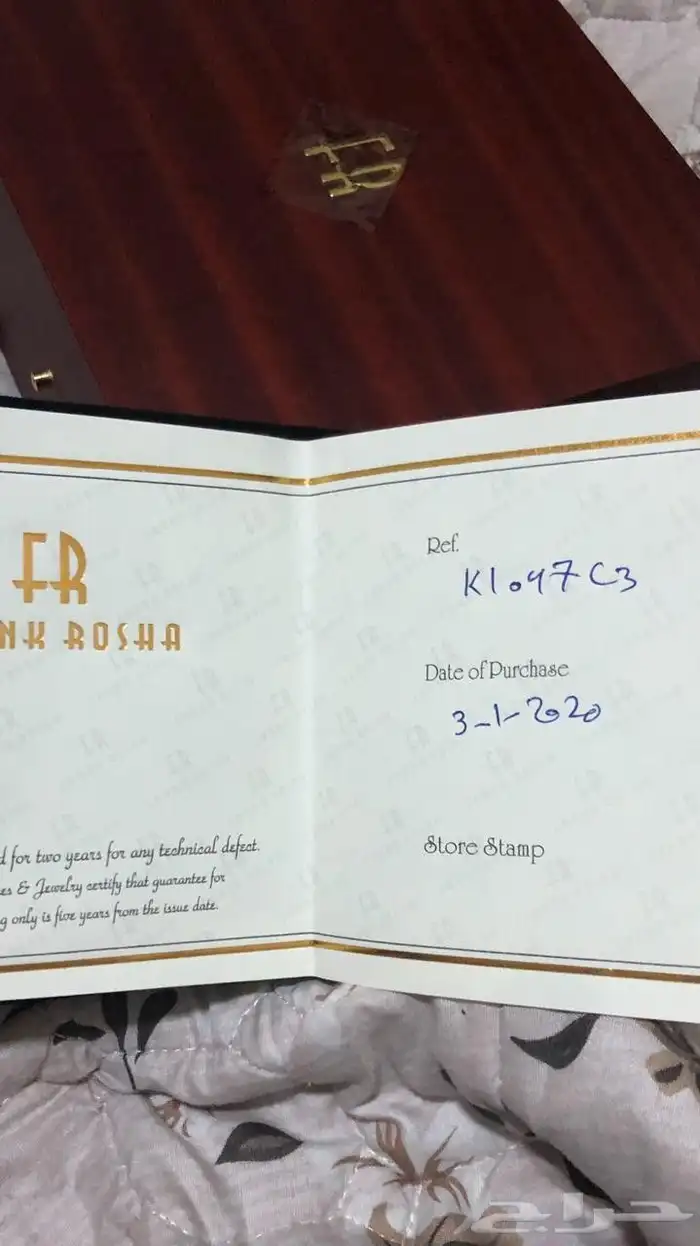 FR
FR
NK ROSHA
d for two years for any technical defect.
es & Jewelry certify that guarantee for
g only is five years from the issue date.
Ref.
K1047C3
Date of Purchase
3-1-2020
Store Stamp
حراج